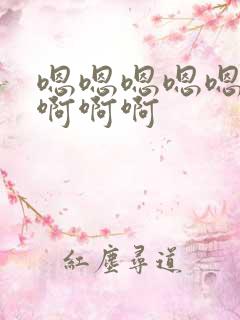 嗯嗯嗯嗯嗯
啊啊啊
紅塵尋道